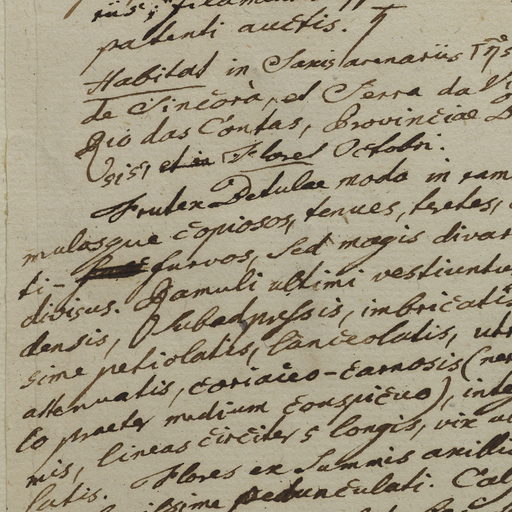 patenti auctis.
Habitat in Saxis arenariis
de Sincorà, et Serra da
Rio das Contas, Provinciae
sis, et in Flores Octobri.
Frutex Betulae modo in ram
mulosque copiosos, tenues, teretes,
ti- furvos, sed magis divar
divisus. Ramuli ultimi vestiuntu
densis, subadpressis, imbricatis
sime petiolatis, lanceolatis, utr
attenuatis, coriaceo-carnosis (ner
lo praeter medium conspicuo), integ
mis, lineas circiter 5 longis, vix
latis. Flores ex summis axilli
sime pedunculati. Cal